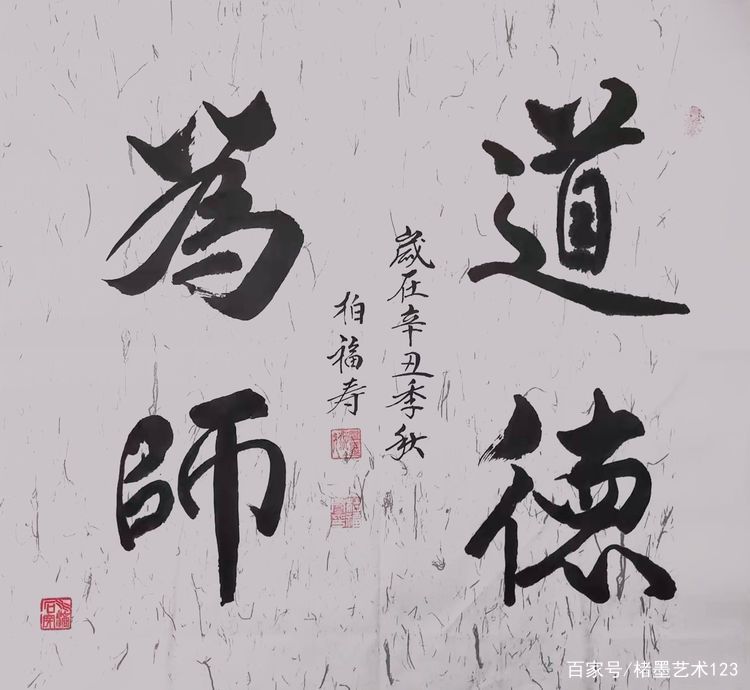 道德
為師
歲在辛丑季秋
柏福寿
百家号/楮墨艺术123